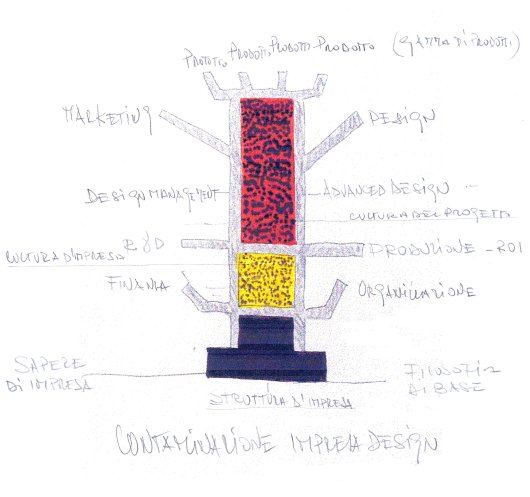 PRODOTTO PRODOTTO PRODOTTO (GAMMA DI PRODOTTI)
MARKETING DESIGN
DESIGN MANAGEMENT ADVANCED DESIGN
CULTURA DEL PROGETTO
R&D PRODUZIONE - ROI
CULTURA D'IMPRESA
FINANZA ORGANIZZAZIONE
SAPERE DI IMPRESA
FILOSOFIA DI BASE
STRUTTURA D'IMPRESA
CONTAMINAZIONE IMPRESA DESIGN